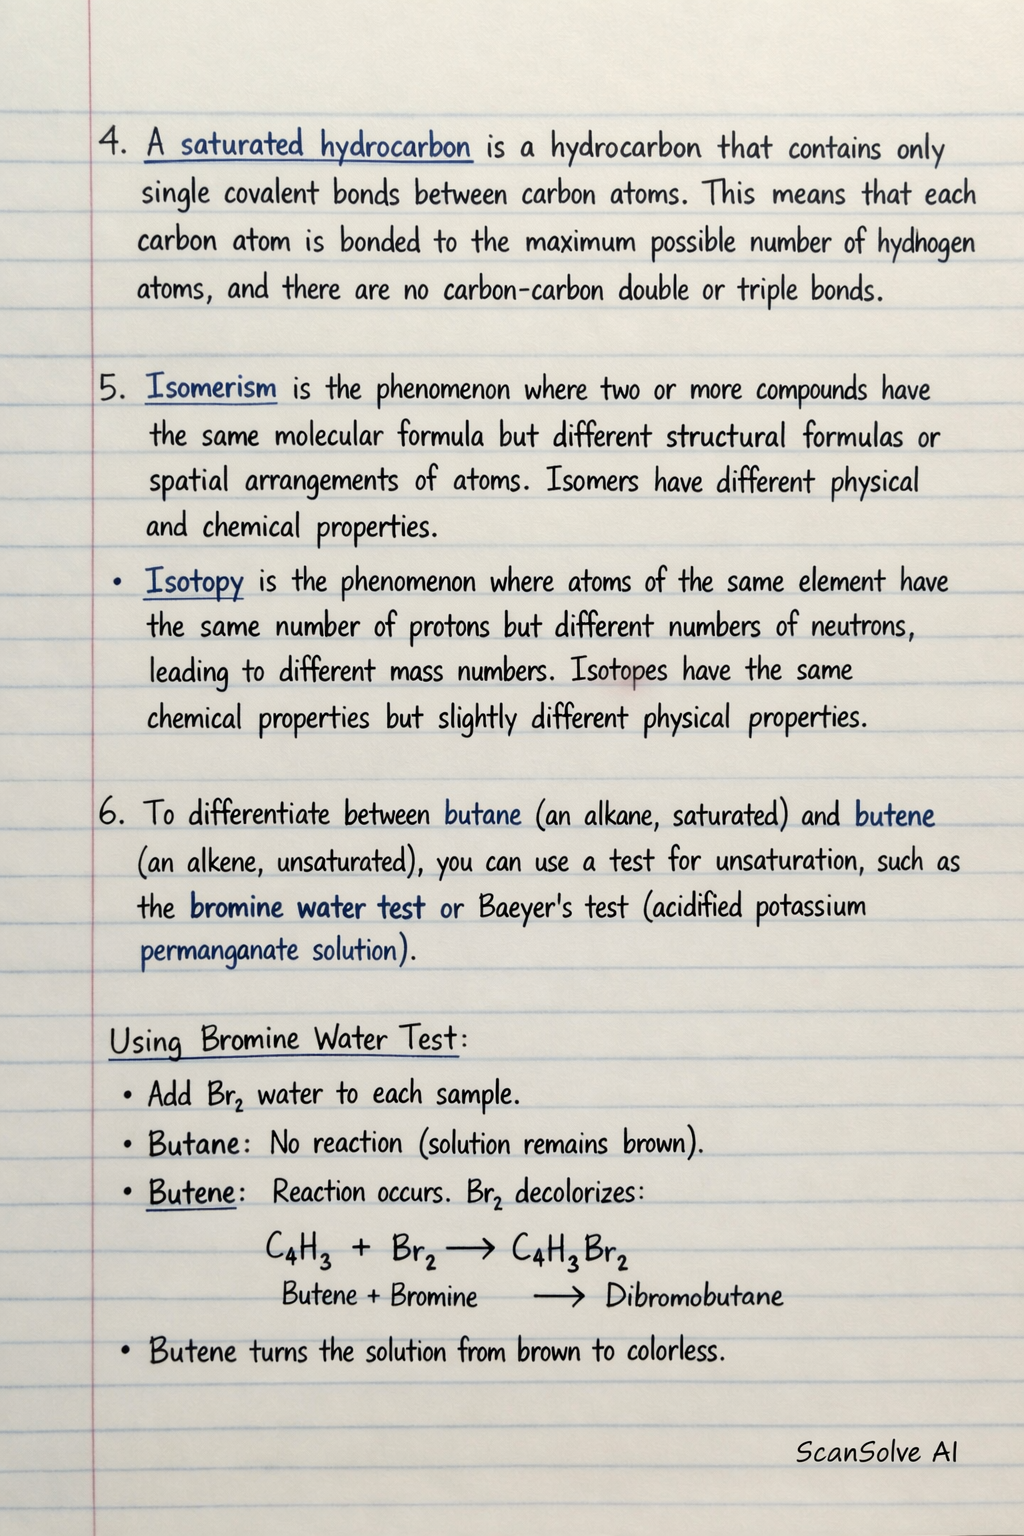 4. A saturated hydrocarbon is a hydrocarbon that contains only
single covalent bonds between carbon atoms. This means that each
carbon atom is bonded to the maximum possible number of hydhogen
atoms, and there are no carbon-carbon double or triple bonds.
5. Isomerism is the phenomenon where two or more compounds have
the same molecular formula but different structural formulas or
spatial arrangements of atoms. Isomers have different physical
and chemical properties.
• Isotopy is the phenomenon where atoms of the same element have
the same number of protons but different numbers of neutrons,
leading to different mass numbers. Isotopes have the same
chemical properties but slightly different physical properties.
6. To differentiate between butane (an alkane, saturated) and butene
(an alkene, unsaturated), you can use a test for unsaturation, such as
the bromine water test or Baeyer's test (acidified potassium
permanganate solution).
Using Bromine Water Test:
• Add Br₂ water to each sample.
• Butane: No reaction (solution remains brown).
• Butene: Reaction occurs. Br₂ decolorizes:
C₄H₃ + Br₂ ⟶ C₄H₃Br₂
Butene + Bromine ⟶ Dibromobutane
• Butene turns the solution from brown to colorless.
ScanSolve AI